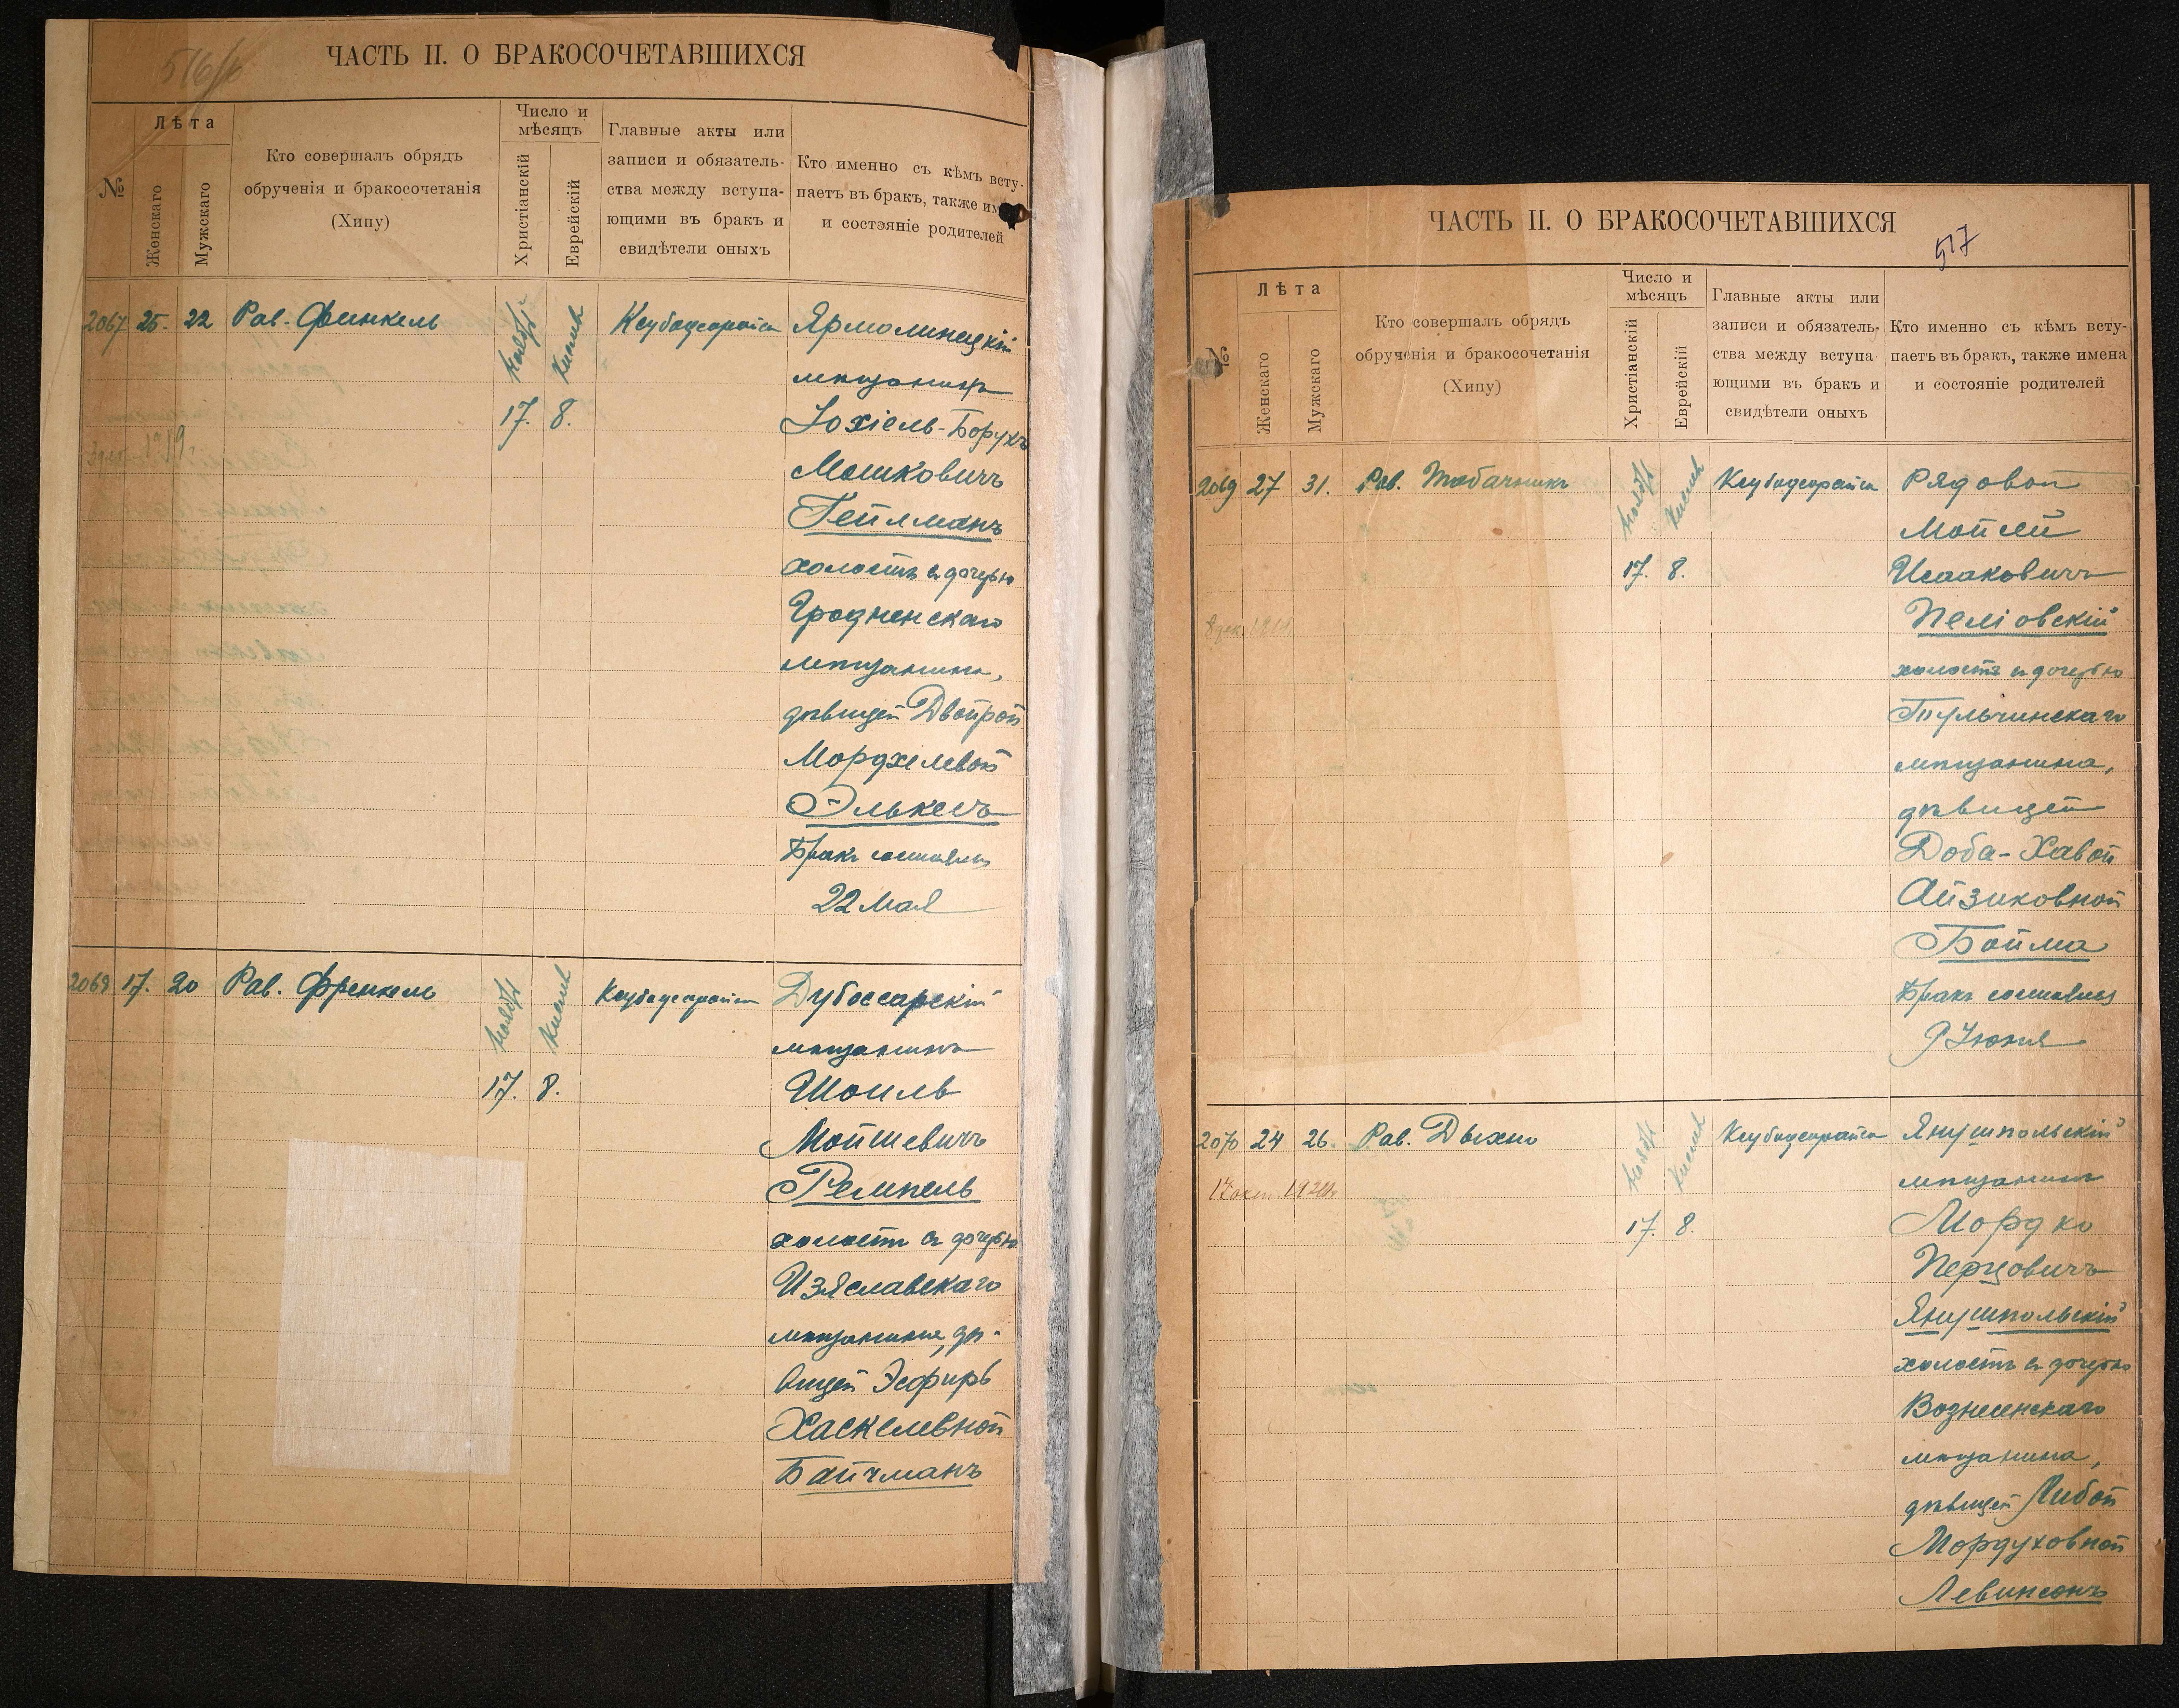 516/б
ЧАСТЬ II. О БРАКОСОЧЕТАВШИХСЯ
№
Лѣта
Женскаго
Мужскаго
Кто совершалъ обрядъ
обрученія и бракосочетанія
(Хипу)
Число и
мѣсяцъ
Христіанскій
Еврейскій
Главные акты или
записи и обязатель-
ства между вступа-
ющими въ бракъ и
свидѣтели оныхъ
Кто именно съ кѣмъ всту-
паетъ въ бракъ, также им
и состояніе родителей
2067 25. 22 Рав. Финкель
Ноябрь Кислев
17. 8.
Ярмолинецкій
мѣщанинъ
Іохіель-Борухъ
Мошковичъ
Гейлманъ
холостъ съ дочерью
Гродненскаго
мѣщанина,
дѣвицей Двойрой
Мордхелевой
Элькесъ
Бракъ состоялся
22 Мая
2068 17. 20 Рав. Френкель
Ноябрь Кислев
17. 8.
Дубоссарскій
мѣщанинъ
Шоиль
Мойшевичъ
Ремпель
холостъ съ дочерью
Изяславскаго
мѣщанина, дѣ-
вицей Эсфирь
Хаскелевной
Байчманъ
ЧАСТЬ II. О БРАКОСОЧЕТАВШИХСЯ
517
№
Лѣта
Женскаго
Мужскаго
Кто совершалъ обрядъ
обрученія и бракосочетанія
(Хипу)
Число и
мѣсяцъ
Христіанскій
Еврейскій
Главные акты или
записи и обязатель-
ства между вступа
ющими въ бракъ и
свидѣтели оныхъ
Кто именно съ кѣмъ всту-
паетъ въ бракъ, также имена
и состояніе родителей
2069 27 31. Рав. Табачникъ
Ноябрь Кислев
17. 8.
Рядовой
Мойсей
Исааковичъ
Пеліовскій
холостъ съ дочерью
Тульчинскаго
мѣщанина,
дѣвицей
Доба-Хавой
Айзиковной
Бойма
Бракъ состоялся
9 Іюня
2070 24 26. Рав. Дыхно
Ноябрь Кислев
17 окт. 1920г.
17. 8.
Янушпольскій
мѣщанинъ
Мордко
Перцовичъ
Янушпольскій
холостъ съ дочерью
Вознесенскаго
мѣщанина,
дѣвицей Либой
Мордуховной
Левинсонъ